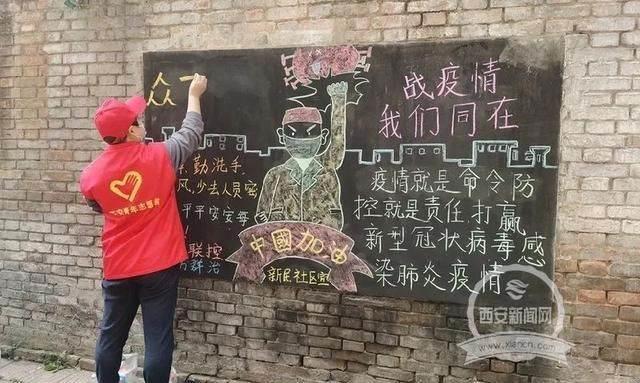 众一
勤洗手
风,少去人员密
平平安安每
联控
群治
中國加油
新民社区宣
战疫情
我们同在
疫情就是命令防
控就是责任打赢
新型冠状病毒感
染肺炎疫情
青年志愿者
西安新闻网
www.xiancn.com